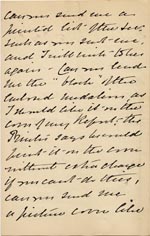 can you send me a
printed list of the books
such as you sent me,
and I will write &
again. Can you lend
me the "block" of the
enclosed medallion as
I would like it on the
cover of my Report; the
Printer says he would
put it on the cover
without extra charge
if you cant do this,
can you send me
a picture some like